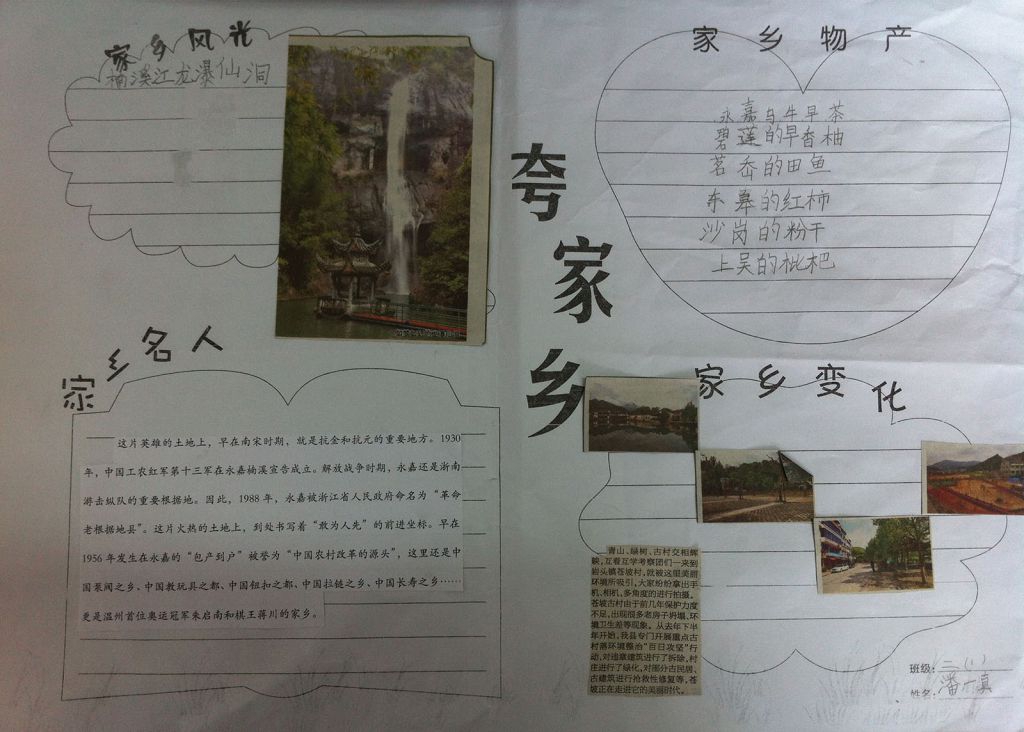 家乡风光
楠溪江龙瀑仙洞
夸家乡
家乡物产
永嘉乌牛早茶
碧莲的早香柚
茗岙的田鱼
东皋的红柿
沙岗的粉干
上吴的枇杷
家乡名人
这片英雄的土地上，早在南宋时期，就是抗金和抗元的重要地方。1930
年，中国工农红军第十三军在永嘉楠溪宣告成立。解放战争时期，永嘉还是浙南
游击纵队的重要根据地。因此，1988年，永嘉被浙江省人民政府命名为“革命
老根据地县”。这片火热的土地上，到处书写着“敢为人先”的前进坐标。早在
1956年发生在永嘉的“包产到户”被誉为“中国农村改革的源头”，这里还是中
国泵阀之乡、中国教玩具之都、中国钮扣之都、中国拉链之乡、中国长寿之乡……
更是温州首位奥运冠军朱启南和棋王蒋川的家乡。
家乡变化
青山、绿树、古村交相辉
映，互看互学考察团们一来到
岩头镇苍坡村，就被这里美丽
环境所吸引，大家纷纷拿出手
机、相机，多角度的进行拍摄。
苍坡古村由于前几年保护力度
不足，出现很多老房子坍塌、环
境卫生差等现象。从去年下半
年开始，我县专门开展重点古
村落环境整治“百日攻坚”行
动，对违章建筑进行了拆除，村
庄进行了绿化，对部分古民居、
古建筑进行抢救性修复等，苍
坡正在走进它的美丽时代。
班级：二（1）
姓名：潘一真